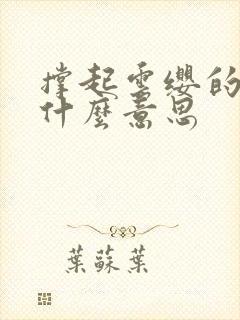 撐起雲纓的
什麼意思
葉蘇葉